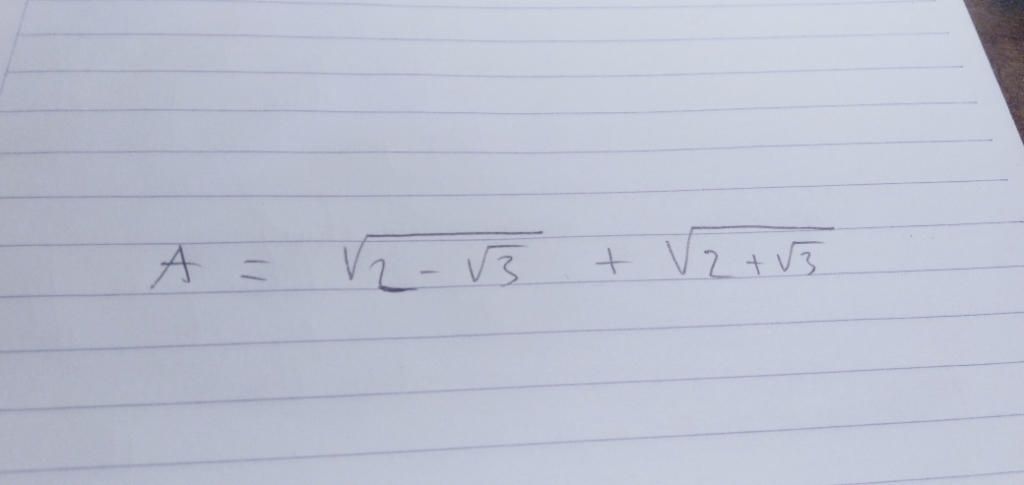 A = √(2 - √3) + √(2 + √3)